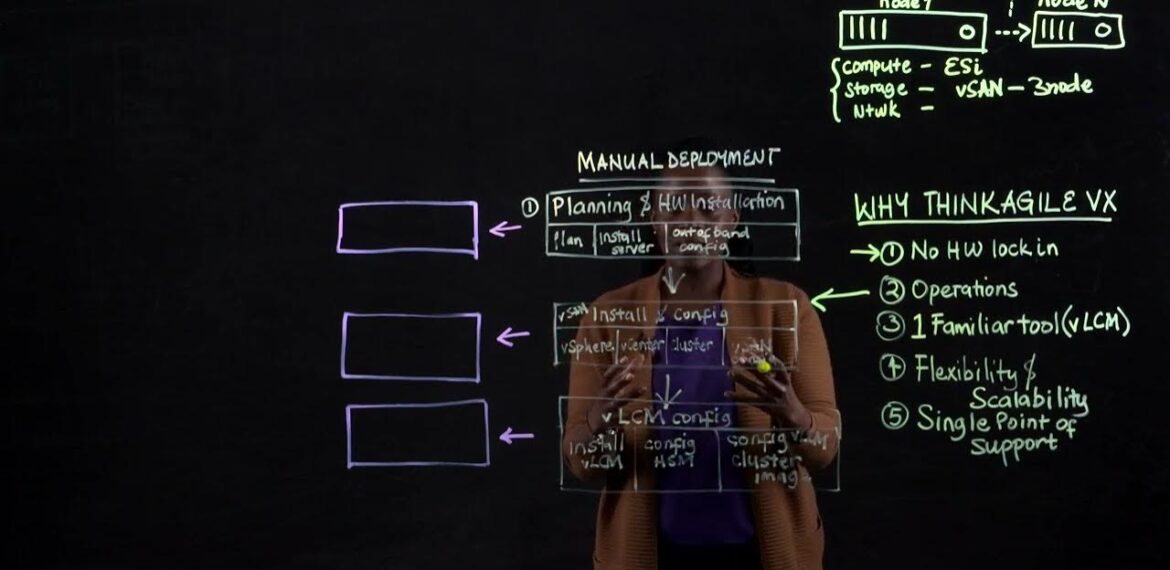 node 1
node N
compute - ESi
Storage - vSAN - 3node
Ntwk -
MANUAL DEPLOYMENT
① Planning & HW Installation
Plan
install server
out of band config
vSAN Install & config
vSphere
vCenter
cluster
vLCM config
install vLCM
config HSM
config vLCM cluster imag
WHY THINKAGILE VX
① No HW lock in
② Operations
③ 1 Familiar tool (vLCM)
④ Flexibility &
Scalability
⑤ Single Point of
support